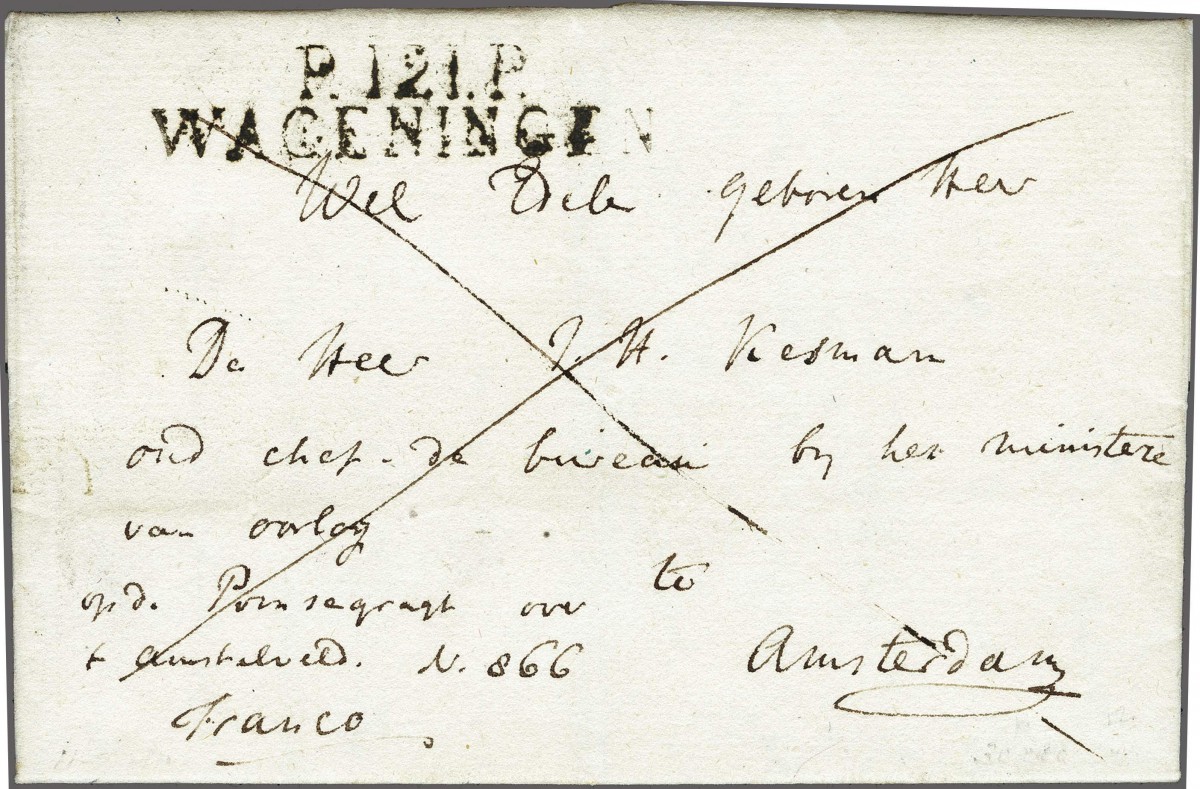 P.121.P.
WAGENINGEN
Wel Edele geboren Heer
De Heer J. H. Kesman
oud chef de bureau by het ministere
van oorlog
op de Prinsegragt over
t amstelveld. N. 866
te
Amsterdam
Franco